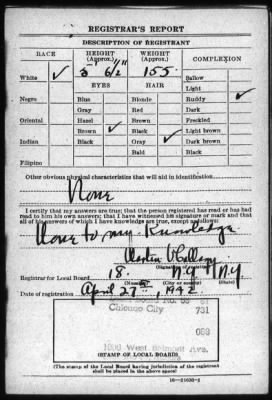 REGISTRAR'S REPORT
DESCRIPTION OF REGISTRANT
RACE HEIGHT (Approx.) WEIGHT (Approx.) COMPLEXION
White ✓ 5' 6½" 155 Sallow
Light
EYES HAIR Ruddy ✓
Negro Blue Blonde Dark
Gray Red Freckled
Oriental Hazel Brown Light brown
Brown ✓ Black Dark brown
Indian Black Gray ✓ Black
Bald
Filipino
Other obvious physical characteristics that will aid in identification
None
I certify that my answers are true; that the person registered has read or has had
read to him his own answers; that I have witnessed his signature or mark and that
all of his answers of which I have knowledge are true, except as follows:
None to my Knowledge
Registrar for Local Board 18 N.Y. N.Y.
(Number) (City or county) (State)
Date of registration April 27th, 1942
Chicago City 731
089
West Belmont Ave.
(STAMP OF LOCAL BOARD)
(The stamp of the Local Board having jurisdiction of the registrant
shall be placed in the above space)
16—21630-2